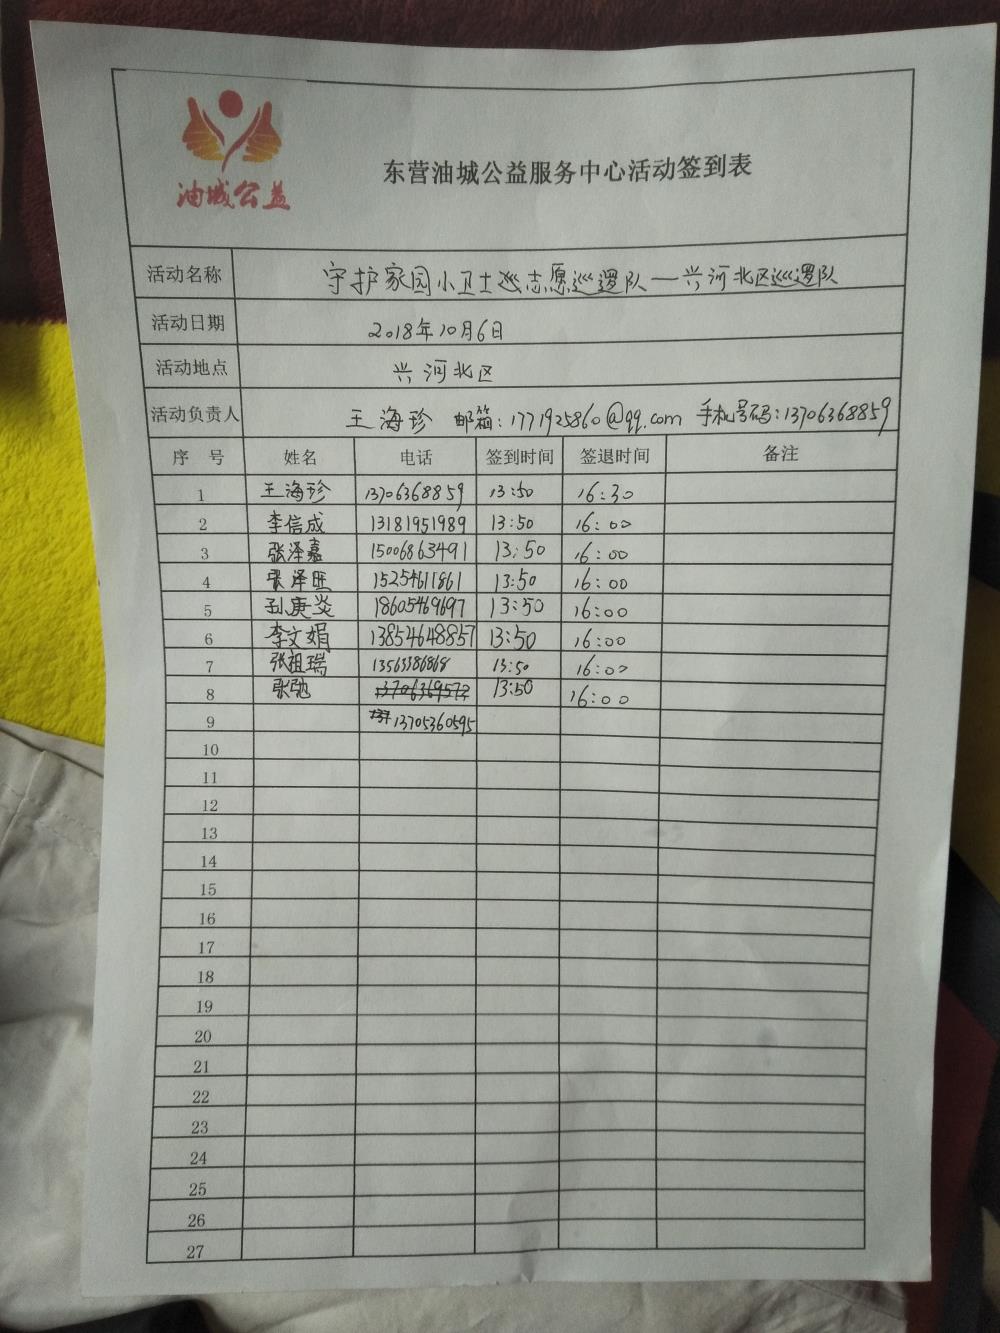 油城公益
东营油城公益服务中心活动签到表
活动名称 守护家园小卫士巡志愿巡逻队—兴河北区巡逻队
活动日期 2018年10月6日
活动地点 兴河北区
活动负责人 王海珍 邮箱:1771925860@qq.com 手机号码:13706368859
序 号 姓名 电话 签到时间 签退时间 备注
1 王海珍 13706368859 13:50 16:30
2 李信成 13181951989 13:50 16:00
3 张泽嘉 15006863491 13:50 16:00
4 张泽旺 15254611861 13:50 16:00
5 孙庚炎 18605469697 13:50 16:00
6 李文娟 13854648857 13:50 16:00
7 张祖瑞 13:50 16:00
8 张弛 13706369572 13:50 16:00
9 13705360595
10
11
12
13
14
15
16
17
18
19
20
21
22
23
24
25
26
27